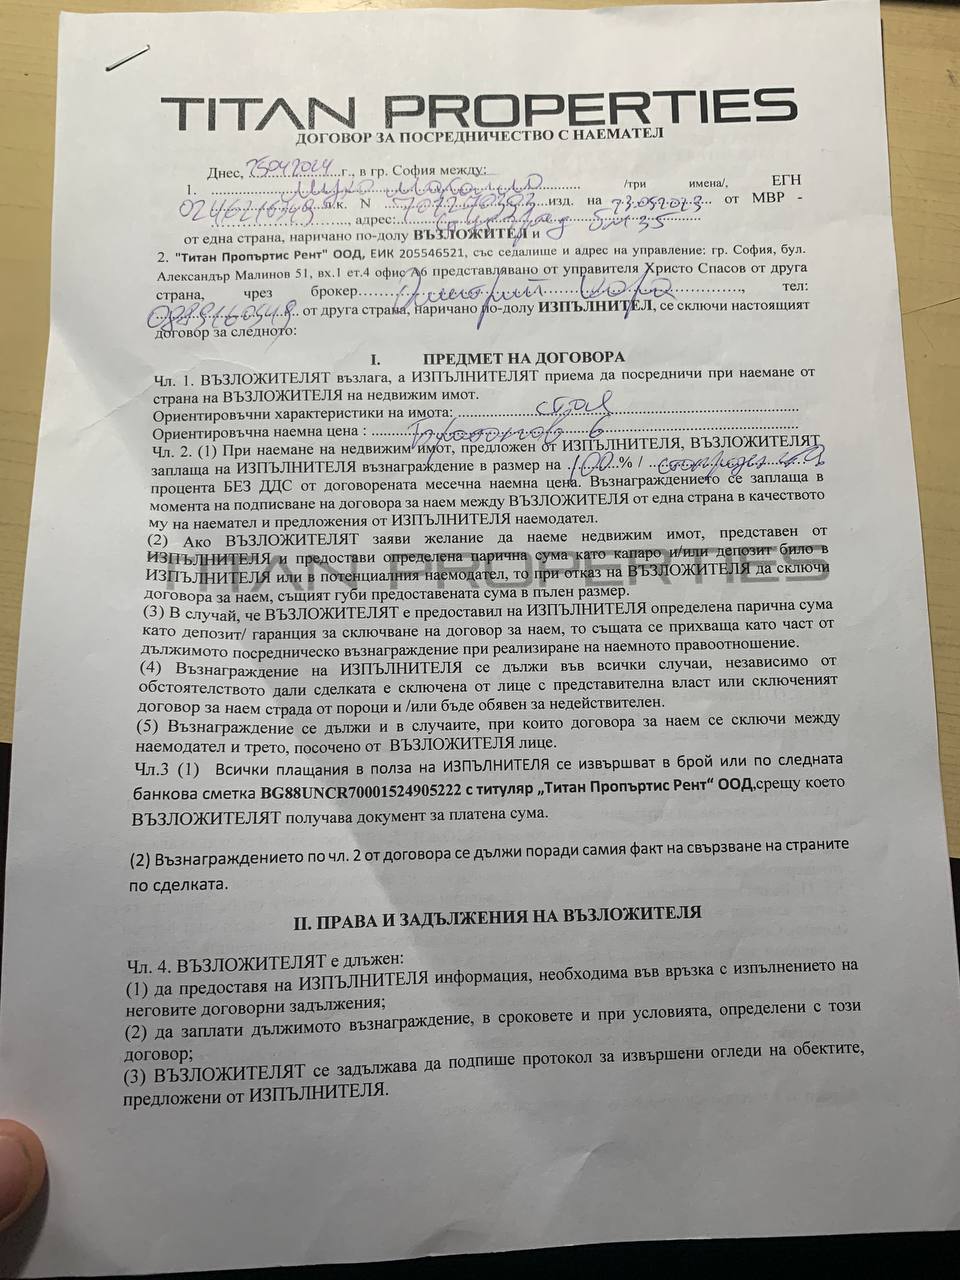 TITAN PROPERTIES
ДОГОВОР ЗА ПОСРЕДНИЧЕСТВО С НАЕМАТЕЛ
Днес, 25042024 г., в гр. София между:
1. /три имена/, ЕГН
л.к. N изд. на от МВР -
адрес:
от една страна, наричано по-долу ВЪЗЛОЖИТЕЛ и
2. "Титан Пропъртис Рент" ООД, ЕИК 205546521, със седалище и адрес на управление: гр. София, бул.
Александър Малинов 51, вх.1 ет.4 офис А6 представлявано от управителя Христо Спасов от друга
страна, чрез брокер Димитрий , тел:
от друга страна, наричано по-долу ИЗПЪЛНИТЕЛ, се сключи настоящият
договор за следното:
I. ПРЕДМЕТ НА ДОГОВОРА
Чл. 1. ВЪЗЛОЖИТЕЛЯТ възлага, а ИЗПЪЛНИТЕЛЯТ приема да посредничи при наемане от
страна на ВЪЗЛОЖИТЕЛЯ на недвижим имот.
Ориентировъчни характеристики на имота: стая
Ориентировъчна наемна цена :
Чл. 2. (1) При наемане на недвижим имот, предложен от ИЗПЪЛНИТЕЛЯ, ВЪЗЛОЖИТЕЛЯТ
заплаща на ИЗПЪЛНИТЕЛЯ възнаграждение в размер на 100 % /
процента БЕЗ ДДС от договорената месечна наемна цена. Възнаграждението се заплаща в
момента на подписване на договора за наем между ВЪЗЛОЖИТЕЛЯ от една страна в качеството
му на наемател и предложения от ИЗПЪЛНИТЕЛЯ наемодател.
(2) Ако ВЪЗЛОЖИТЕЛЯТ заяви желание да наеме недвижим имот, представен от
ИЗПЪЛНИТЕЛЯ и предостави определена парична сума като капаро и/или депозит било в
TITAN PROPERTIES
ИЗПЪЛНИТЕЛЯ или в потенциалния наемодател, то при отказ на ВЪЗЛОЖИТЕЛЯ да сключи
договора за наем, същият губи предоставената сума в пълен размер.
(3) В случай, че ВЪЗЛОЖИТЕЛЯТ е предоставил на ИЗПЪЛНИТЕЛЯ определена парична сума
като депозит/ гаранция за сключване на договор за наем, то същата се прихваща като част от
дължимото посредническо възнаграждение при реализиране на наемното правоотношение.
(4) Възнаграждение на ИЗПЪЛНИТЕЛЯ се дължи във всички случаи, независимо от
обстоятелството дали сделката е сключена от лице с представителна власт или сключеният
договор за наем страда от пороци и /или бъде обявен за недействителен.
(5) Възнаграждение се дължи и в случаите, при които договора за наем се сключи между
наемодател и трето, посочено от ВЪЗЛОЖИТЕЛЯ лице.
Чл.3 (1) Всички плащания в полза на ИЗПЪЛНИТЕЛЯ се извършват в брой или по следната
банкова сметка BG88UNCR70001524905222 с титуляр „Титан Пропъртис Рент“ ООД,срещу което
ВЪЗЛОЖИТЕЛЯТ получава документ за платена сума.
(2) Възнаграждението по чл. 2 от договора се дължи поради самия факт на свързване на страните
по сделката.
II. ПРАВА И ЗАДЪЛЖЕНИЯ НА ВЪЗЛОЖИТЕЛЯ
Чл. 4. ВЪЗЛОЖИТЕЛЯТ е длъжен:
(1) да предоставя на ИЗПЪЛНИТЕЛЯ информация, необходима във връзка с изпълнението на
неговите договорни задължения;
(2) да заплати дължимото възнаграждение, в сроковете и при условията, определени с този
договор;
(3) ВЪЗЛОЖИТЕЛЯТ се задължава да подпише протокол за извършени огледи на обектите,
предложени от ИЗПЪЛНИТЕЛЯ.